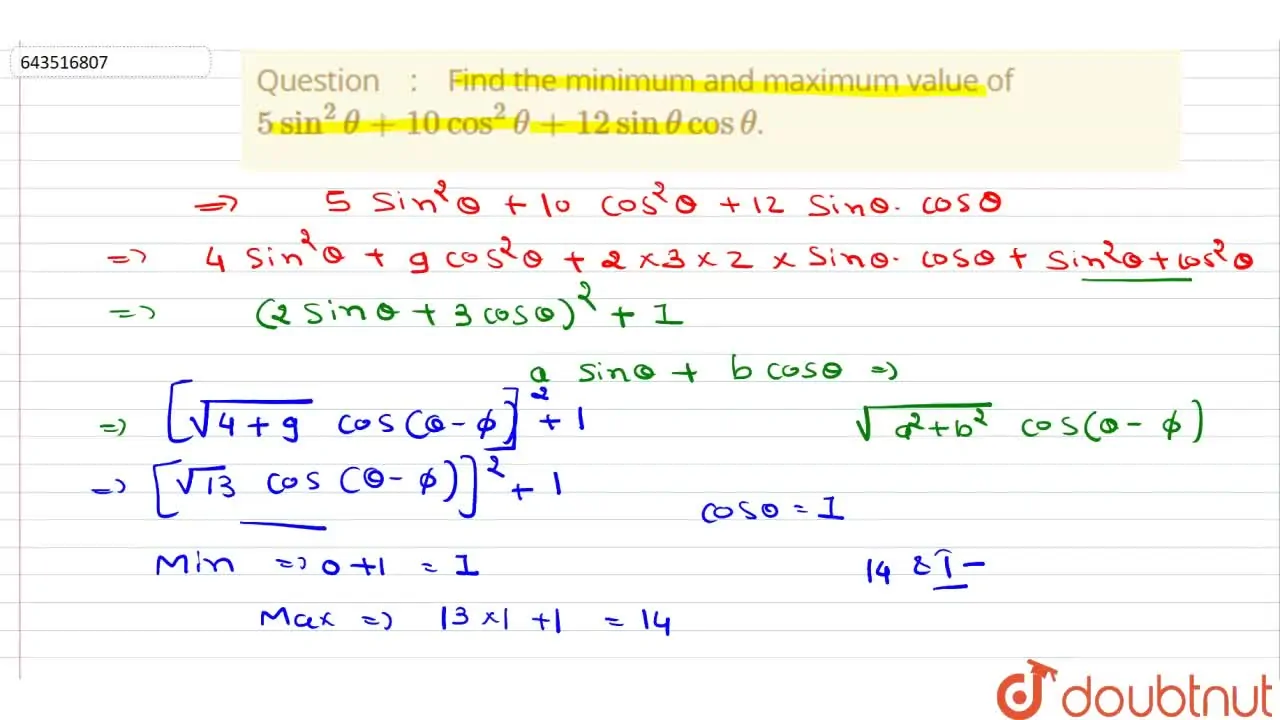 643516807
Question : Find the minimum and maximum value of
5 sin² θ + 10 cos² θ + 12 sin θ cos θ.
⇒ 5 sin²θ + 10 cos²θ + 12 sinθ. cosθ
⇒ 4 sin²θ + 9 cos²θ + 2×3×2× sinθ. cosθ + sin²θ+cos²θ
⇒ (2 sinθ + 3 cosθ)² + 1
a sinθ + b cosθ ⇒
⇒ [√4+9 cos(θ-ϕ)]² + 1
√a²+b² cos(θ-ϕ)
⇒ [√13 cos (θ-ϕ)]² + 1
cosθ = 1
Min ⇒ 0+1 = 1
14 & 1
Max ⇒ 13×1 +1 = 14
doubtnut